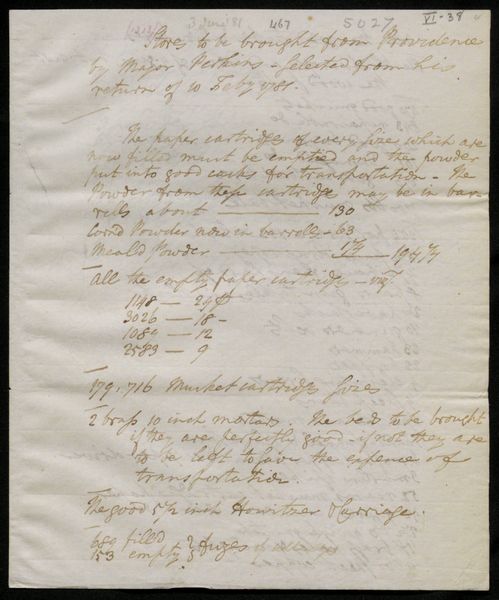 467
5027
VI-38
Stores to be brought from Providence
by Major Perkins - Selected from his
return of 10 Feby 1781.
The paper cartridges of every sizes which are
now filled must be emptied and the powder
put into good casks for transportation - The
Powder from these cartridges may be in bar-
rells about 130
Cornd Powder now in barrells - 63
Meal'd Powder
All the empty paper cartridges - viz
1148 — 24
3026 — 18 -
1084 — 12
2583 — 9
179,716 Musket cartridges Sizes
2 brass 10 inch mortars. The beds to be brought
if they are perfectly good - if not they are
to be left to save the expence of
transportation.
The good 5½ inch Howitzer & Carriage.
680 filld
153 empty
fuzes of all sizes